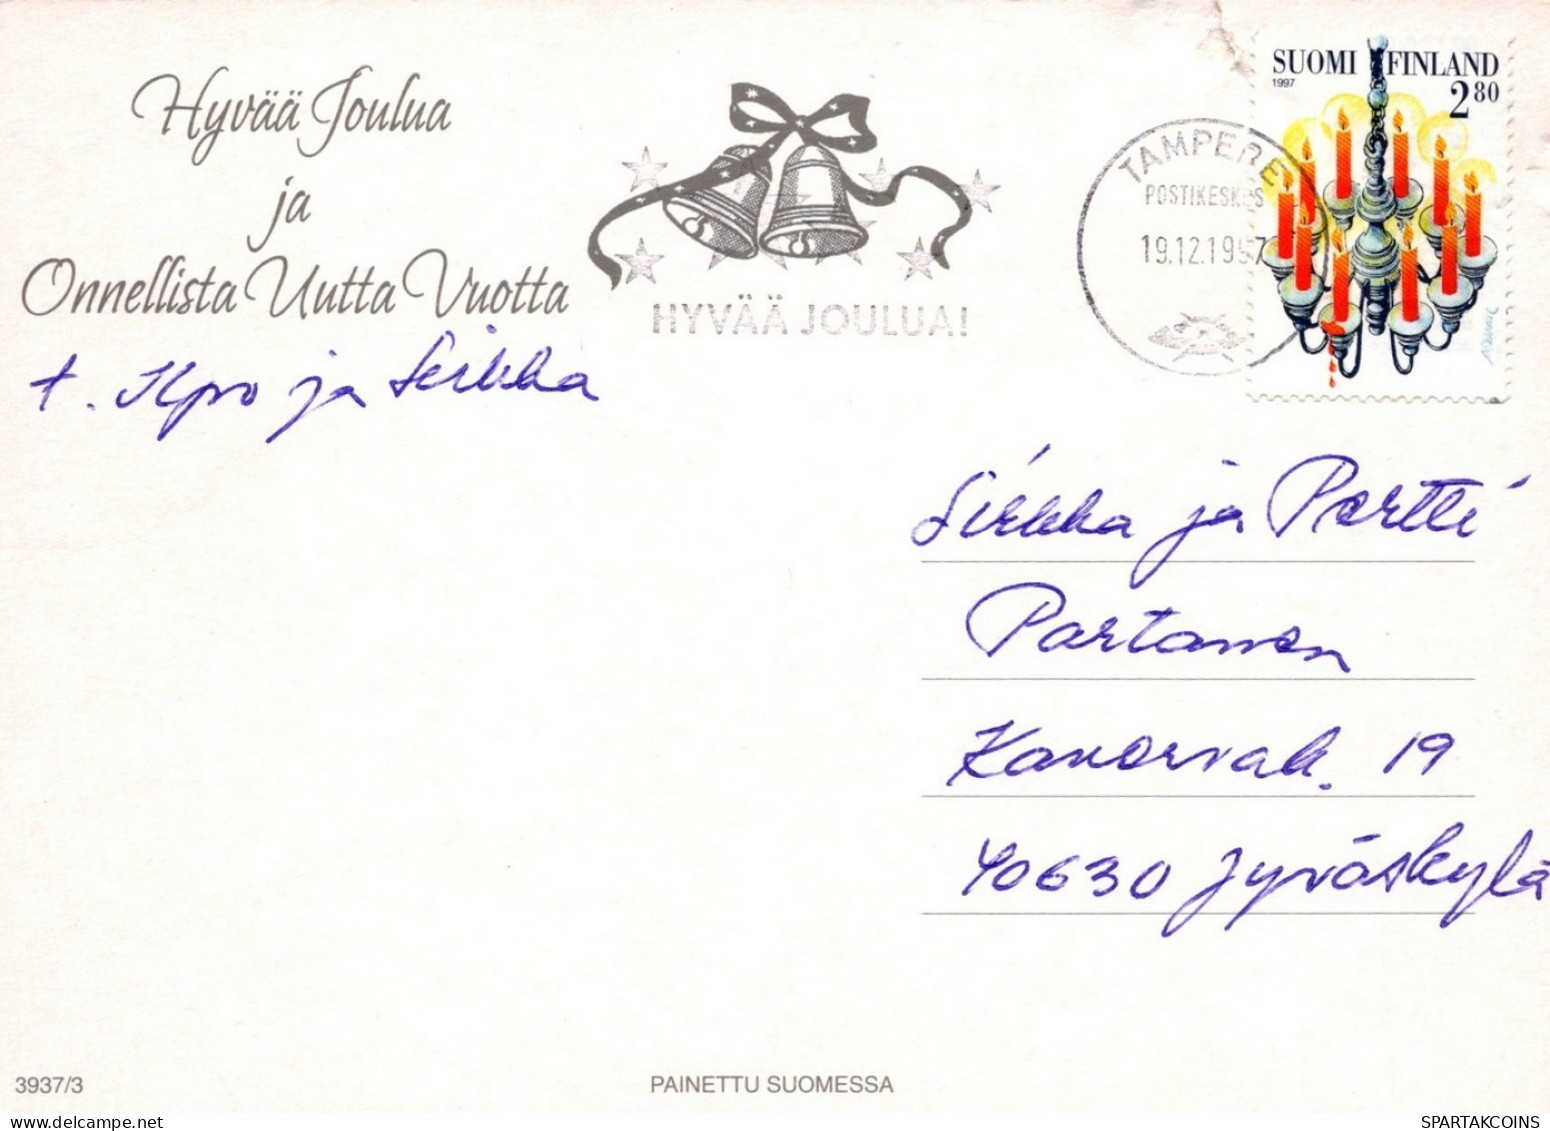 Hyvää Joulua
ja
Onnellista Uutta Vuotta
t. Ilpo ja Seikka
HYVÄÄ JOULUA!
TAMPERE
POSTIKESKUS
19.12.1997
SUOMI FINLAND
1997
2 80
Sirkka ja Pertti
Partanen
19
40630 Jyväskylä
3937/3
PAINETTU SUOMESSA
SPARTAKCOINS
delcampe.net